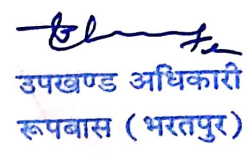 उपखण्ड अधिकारी
रूपबास ( भरतपुर )